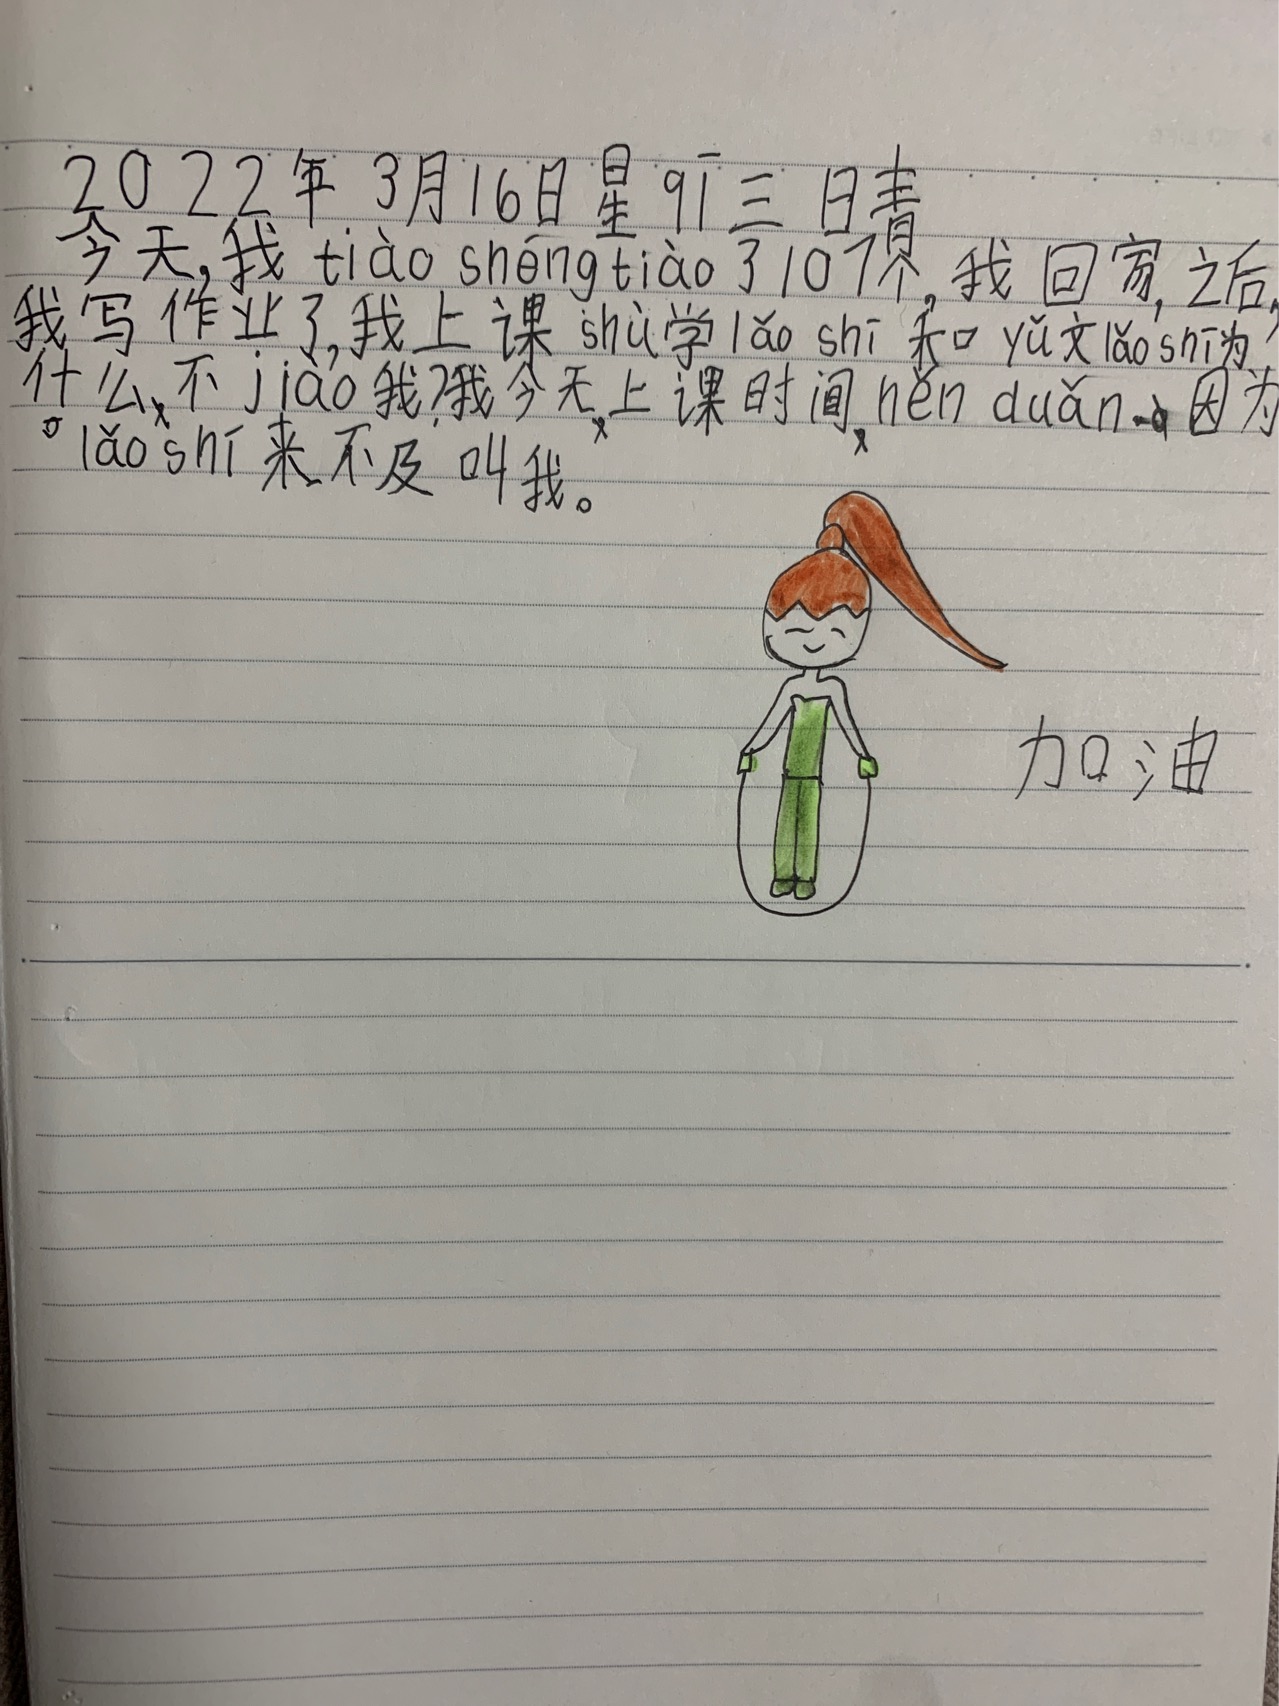 2022年3月16日星qī三 日晴
今天,我tiào shéng tiào了107个,我回家,之后,
我写作业了,我上课shù学lǎo shī和yǔ文lǎo shī为
什么、不jiào我?我今天、上课时间,hěn duǎn。因为
lǎo shī来不及叫我。
加油